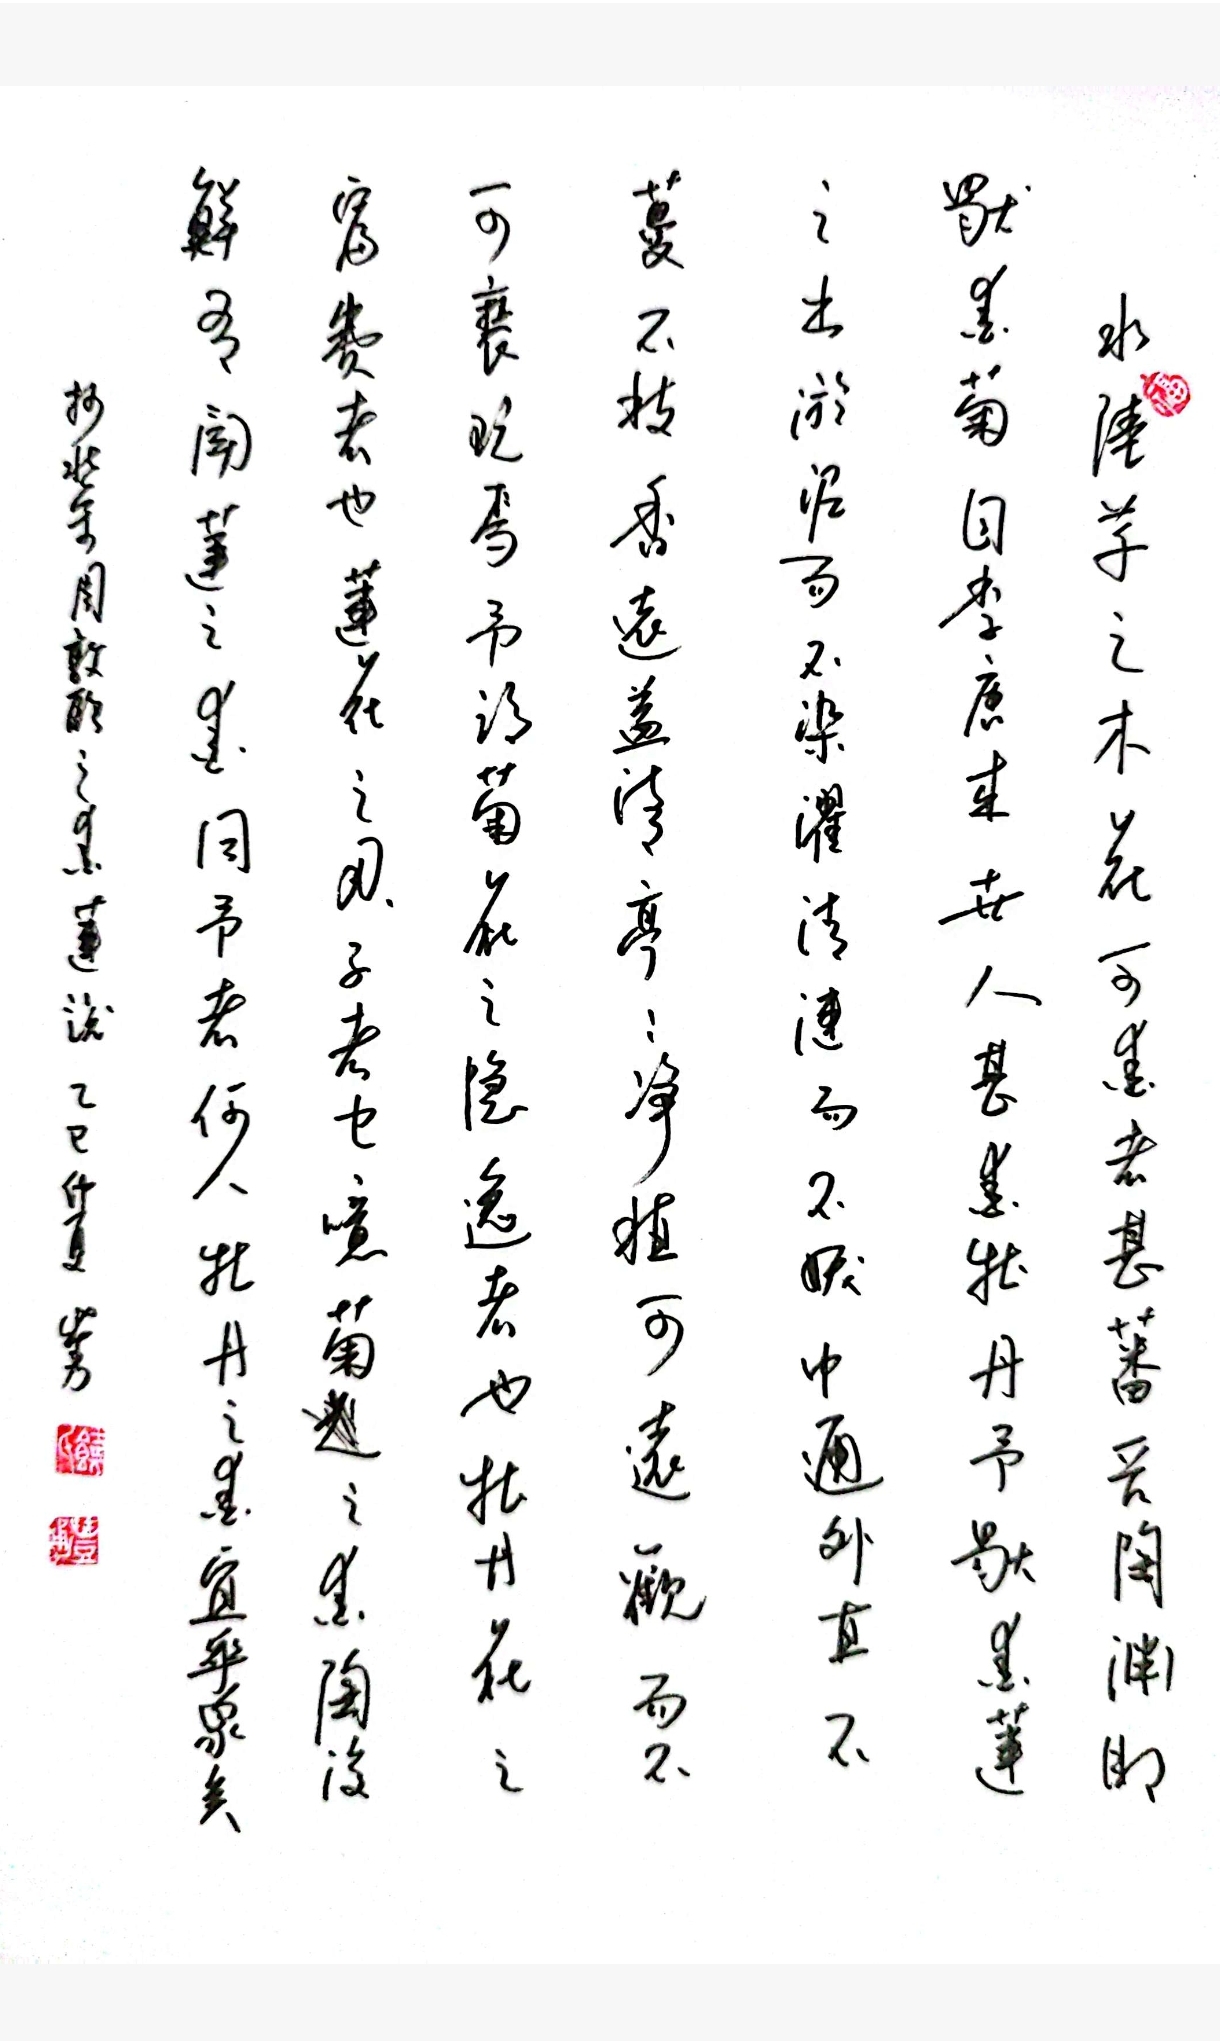 水陸草之木花可愛者甚蕃晉陶淵明
獨愛菊自李唐来世人甚愛牡丹予獨愛蓮
之出淤泥而不染濯清漣而不妖中通外直不
蔓不枝香遠益清亭〻净植可遠觀而不
可褻玩焉予謂菊花之隐逸者也牡丹花之
富貴者也蓮花之君子者也噫菊之愛陶後
鮮有聞蓮之愛同予者何人牡丹之愛宜乎衆矣
抄北宋周敦頤之愛蓮説乙巳仲夏